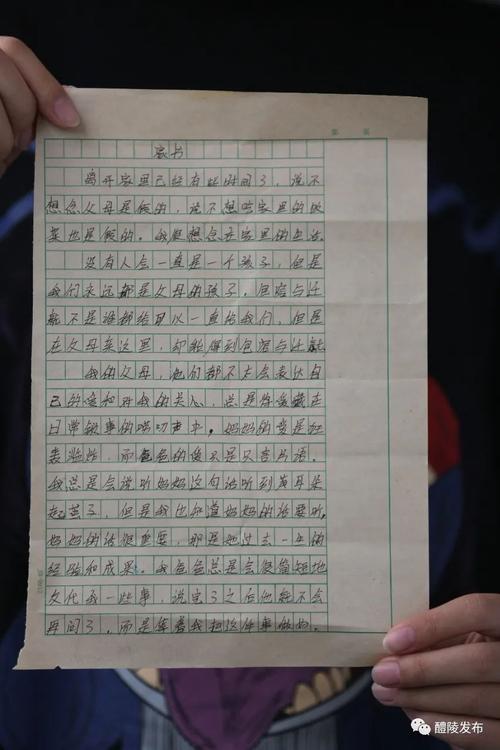 第 页
家书
离开家里已经有些时间了，说不
想念父母是假的，说不想吃家里的饭
菜也是假的。我很想念在家里的生活。
没有人会一直是一个孩子，但是
我们永远都是父母的孩子，包容与迁
就不是谁都给可以一直给我们，但是
在父母亲这里，却能得到包容与迁就
我的父母，他们都不太会表达自
己的爱和对我的关心，总是将爱藏在
日常琐事的唠叨声中，妈妈的爱是
而爸爸的爱只是只言片语。
我总是会说听妈妈这句话听到都耳朵
起茧子，但是我也知道妈妈的话要听，
妈妈的话很重要，那是她过去一生的
经验和成果。我爸爸总是会很简短地
交代我一些事，说完了之后他就不会
再问了，而是等着我把这件事做好。
醴陵发布